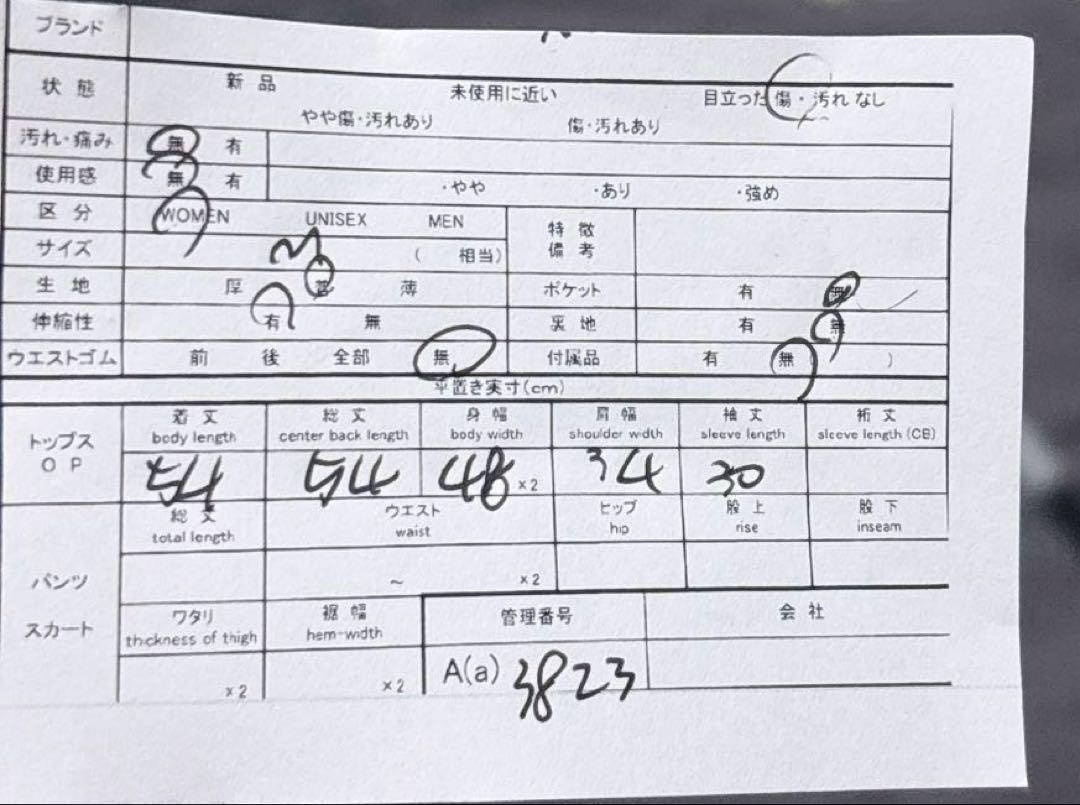 ブランド
状態 新品 未使用に近い 目立った傷・汚れなし
やや傷・汚れあり 傷・汚れあり
汚れ・痛み 無 有
使用感 無 有 ・やや ・あり ・強め
区分 WOMEN UNISEX MEN 特徴
備考
サイズ M ( 相当)
生地 厚 普 薄 ポケット 有 無
伸縮性 有 無 裏地 有 無
ウエストゴム 前 後 全部 無 付属品 有 無 ( )
平置き実寸(cm)
トップス
OP
着丈 総丈 身幅 肩幅 袖丈 裄丈
body length center back length body width shoulder width sleeve length sleeve length (CB)
54 54 48 ×2 34 30
総丈 ウエスト ヒップ 股上 股下
total length waist hip rise inseam
パンツ ~ ×2
スカート
ワタリ 裾幅 管理番号 会社
thickness of thigh hem-width
×2 ×2 A(a) 3823